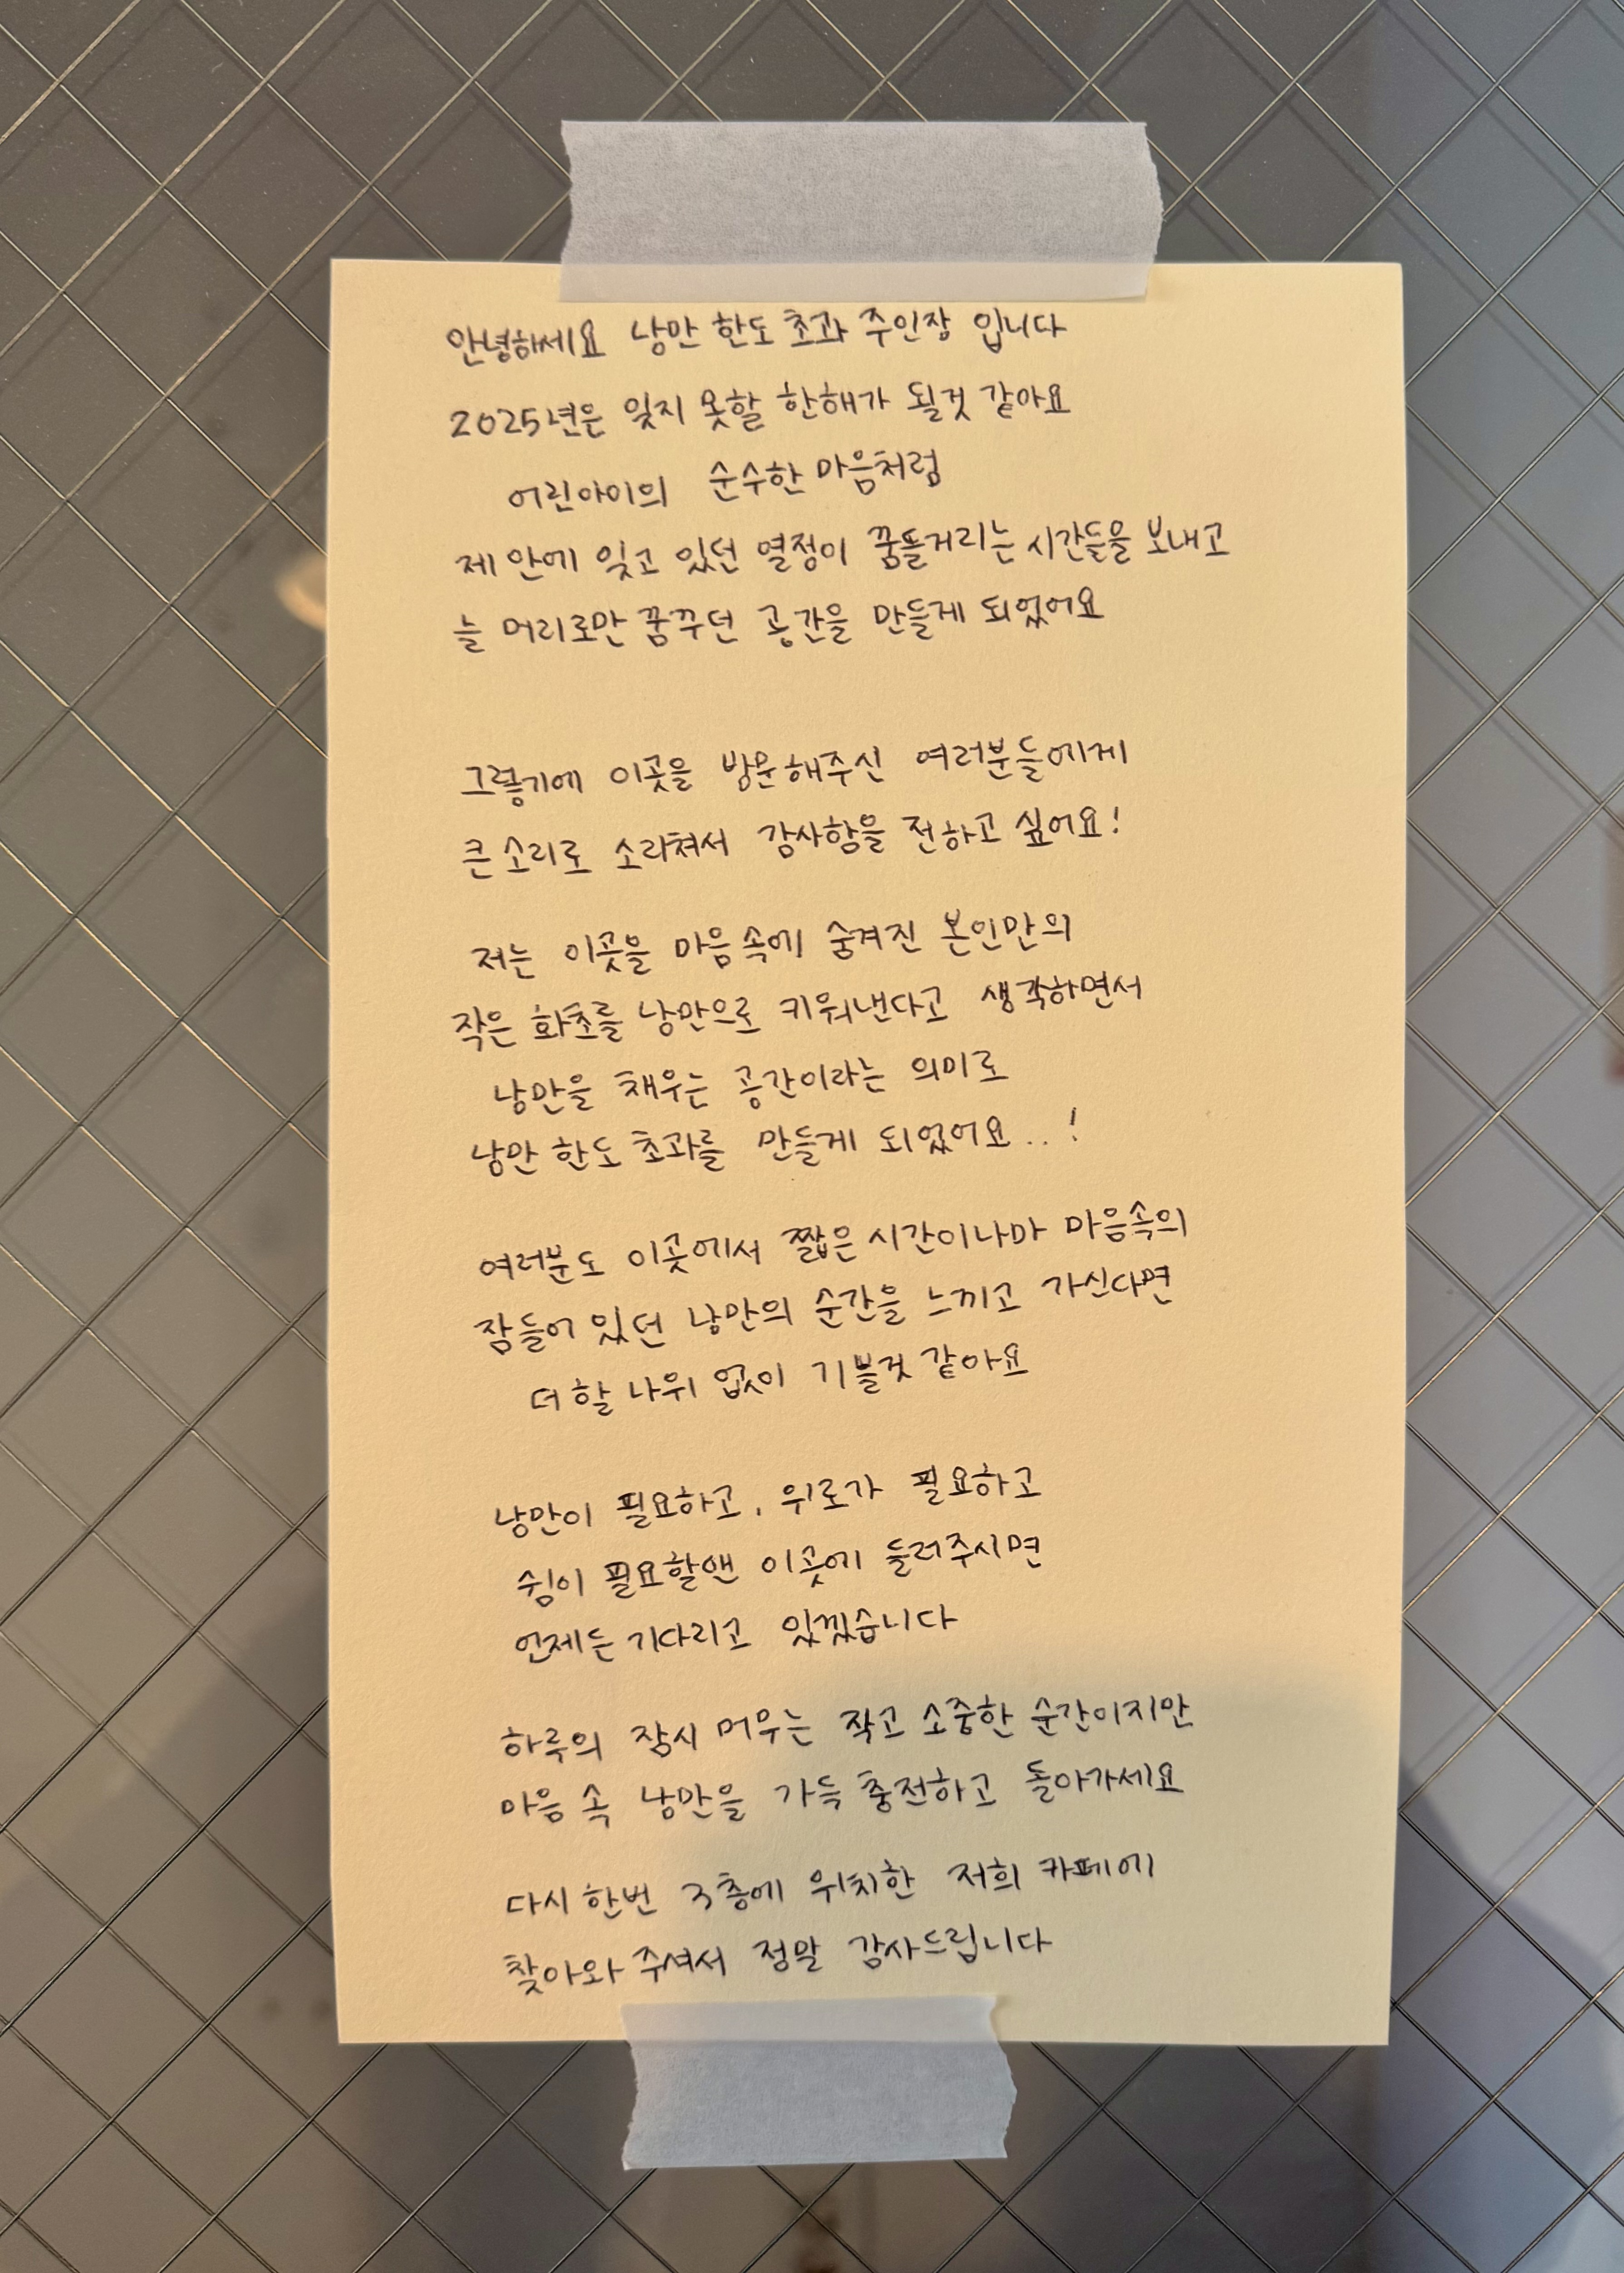 안녕하세요 낭만 한도 초과 주인장 입니다
2025년은 잊지 못할 한해가 될것 같아요
어린아이의 순수한 마음처럼
제 안에 잊고 있던 열정이 꿈틀거리는 시간들을 보내고
늘 머리로만 꿈꾸던 공간을 만들게 되었어요
그렇기에 이곳을 방문해주신 여러분들에게
큰 소리로 소리쳐서 감사함을 전하고 싶어요!
저는 이곳을 마음속에 숨겨진 본인만의
작은 화초를 낭만으로 키워낸다고 생각하면서
낭만을 채우는 공간이라는 의미로
낭만 한도 초과를 만들게 되었어요..!
여러분도 이곳에서 짧은 시간이나마 마음속의
잠들어 있던 낭만의 순간을 느끼고 가신다면
더할 나위 없이 기쁠것 같아요
낭만이 필요하고, 위로가 필요하고
쉼이 필요할땐 이곳에 들려주시면
언제든 기다리고 있겠습니다
하루의 잠시 머무는 작고 소중한 순간이지만
마음 속 낭만을 가득 충전하고 돌아가세요
다시 한번 3층에 위치한 저희 카페에
찾아와 주셔서 정말 감사드립니다